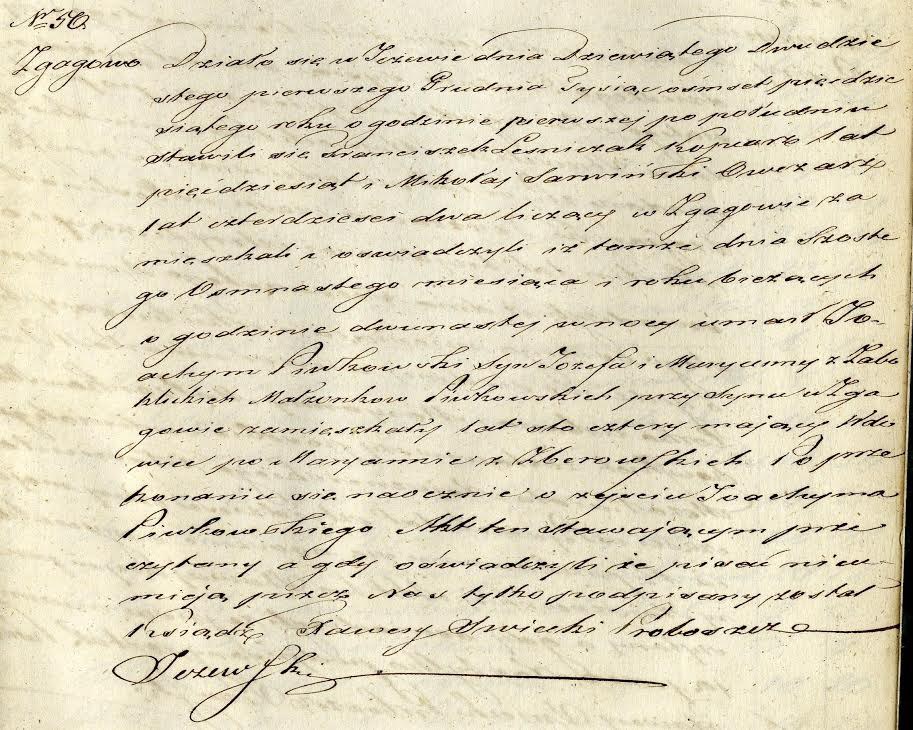 Nr 50.
Zgagowo Działo się w Jeżewie dnia Dziewiątego Dwudzie
stego pierwszego Grudnia Tysiąc ośmset pięćdzie
siątego roku o godzinie pierwszej po południu
stawili się Franciszek Leśniczak Kopiarz lat
pięćdziesiąt i Mikołaj Sarwiński Owczarz
lat czterdzieści dwa liczący w Zgagowie za
mięszkali i oświadczyli iż tamże dnia Szoste
go Osmnastego miesiąca i roku bieżących
o godzinie dwunastej w nocy umarł Jo-
achym Piwkowski Syn Jozefa i Maryanny z Zabo
kłickich Małżonkow Piwkowskich przy Synu w Zga
gowie zamięszkały lat sto cztery mający Wdo
wiec po Maryannie z Zberowskich Po prze
konaniu się naocznie o zyściu Joachyma
Piwkowskiego Akt ten stawającym prze
czytany a gdy oświadczyli że pisać nieu-
mieją przez Nas tylko podpisany został
Ksiądz Xawery Swiecki Proboszcz
Jeżewski